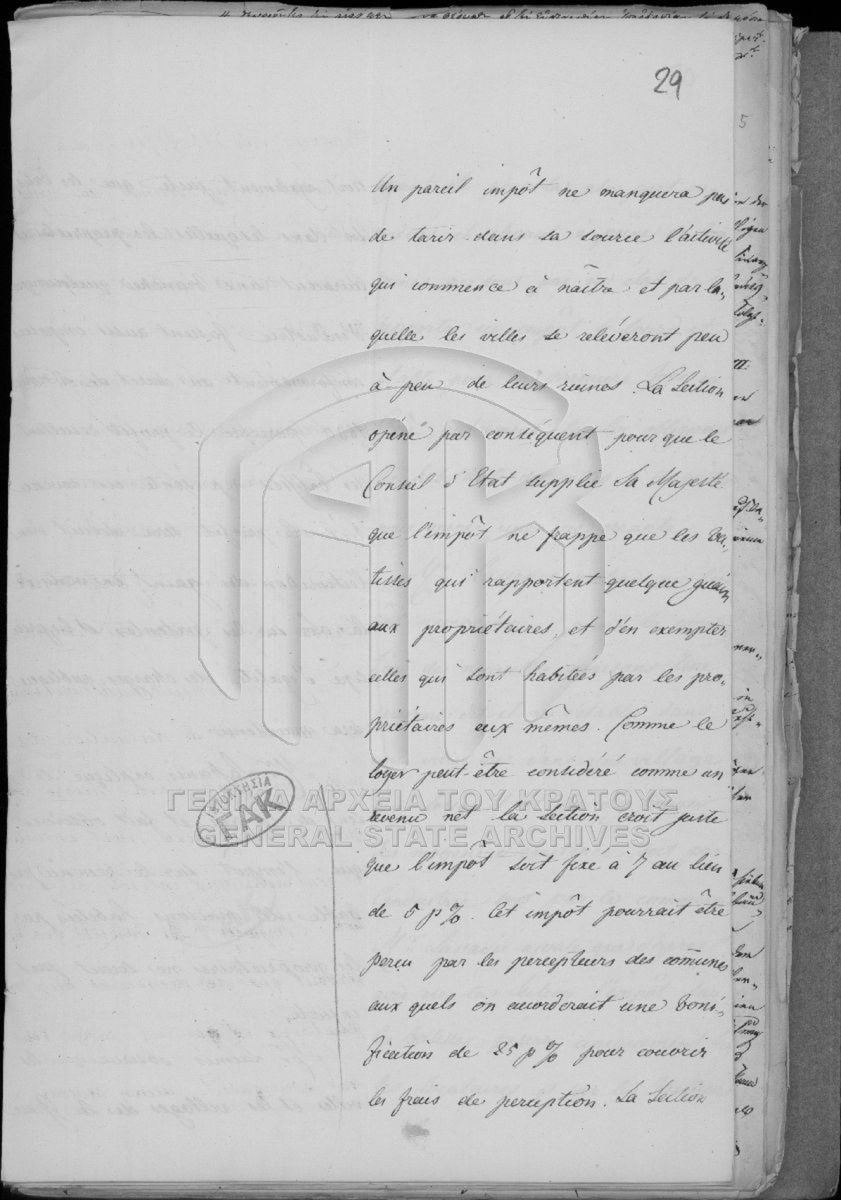 29
Un pareil impôt ne manquera pas
de tarir dans sa source l'activité
qui commence à naître et par la-
quelle les villes se relèveront peu
à peu de leurs ruines. La Section
opine par conséquent pour que le
Conseil d'Etat supplie Sa Majesté
que l'impôt ne frappe que les bâ-
tisses qui rapportent quelque gain
aux propriétaires, et d'en exempter
celles qui sont habitées par les pro-
priétaires eux mêmes. Comme le
loyer peut être considéré comme un
revenu net la Section croit juste
que l'impôt soit fixé à 7 au lieu
de 5 p%. Cet impôt pourrait être
perçu par les percepteurs des communes
aux quels on accorderait une boni-
fication de 25 p% pour couvrir
les frais de perception. La Section
ΓΕΝΙΚΑ ΑΡΧΕΙΑ ΤΟΥ ΚΡΑΤΟΥΣ
GENERAL STATE ARCHIVES
ΙΔΙΟΚΤΗΣΙΑ
ΓΑΚ
5